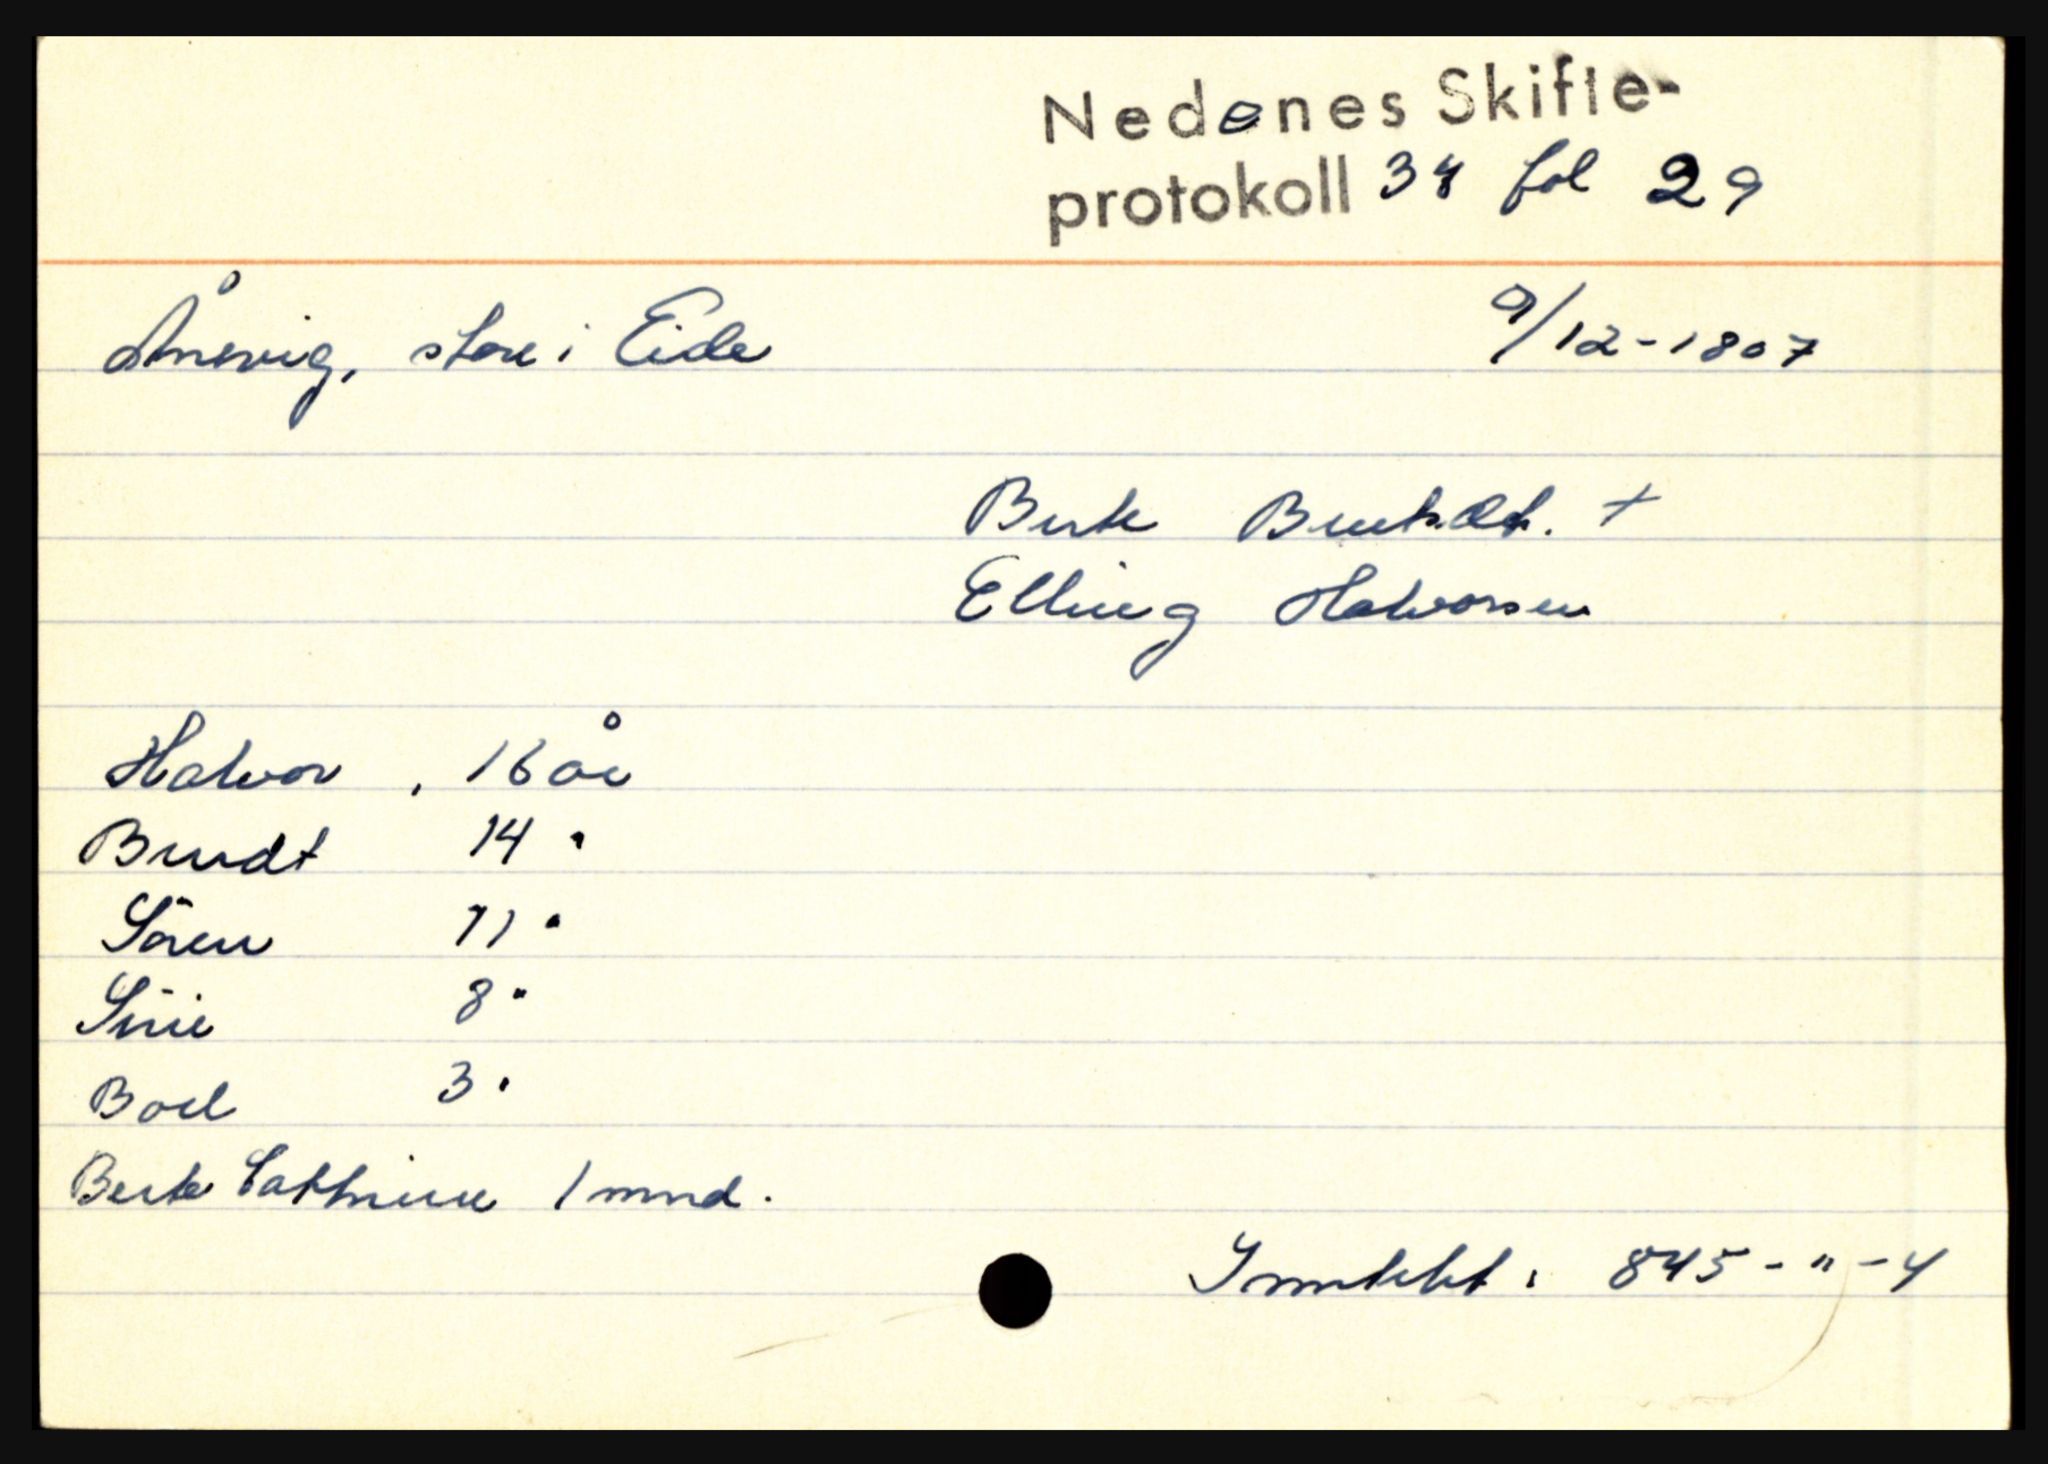 Nedenes Skifte-
protokoll 34 fol 29
Ånevig, store i Eide 9/12-1807
Berte Berntsdt. +
Elling Halvorsen
Halvor, 16 år
Berndt 14 "
Sören 11 "
Siri 8 "
Boel 3 "
Berte Cathrine 1 mnd.
Inntekt: 845-"-4